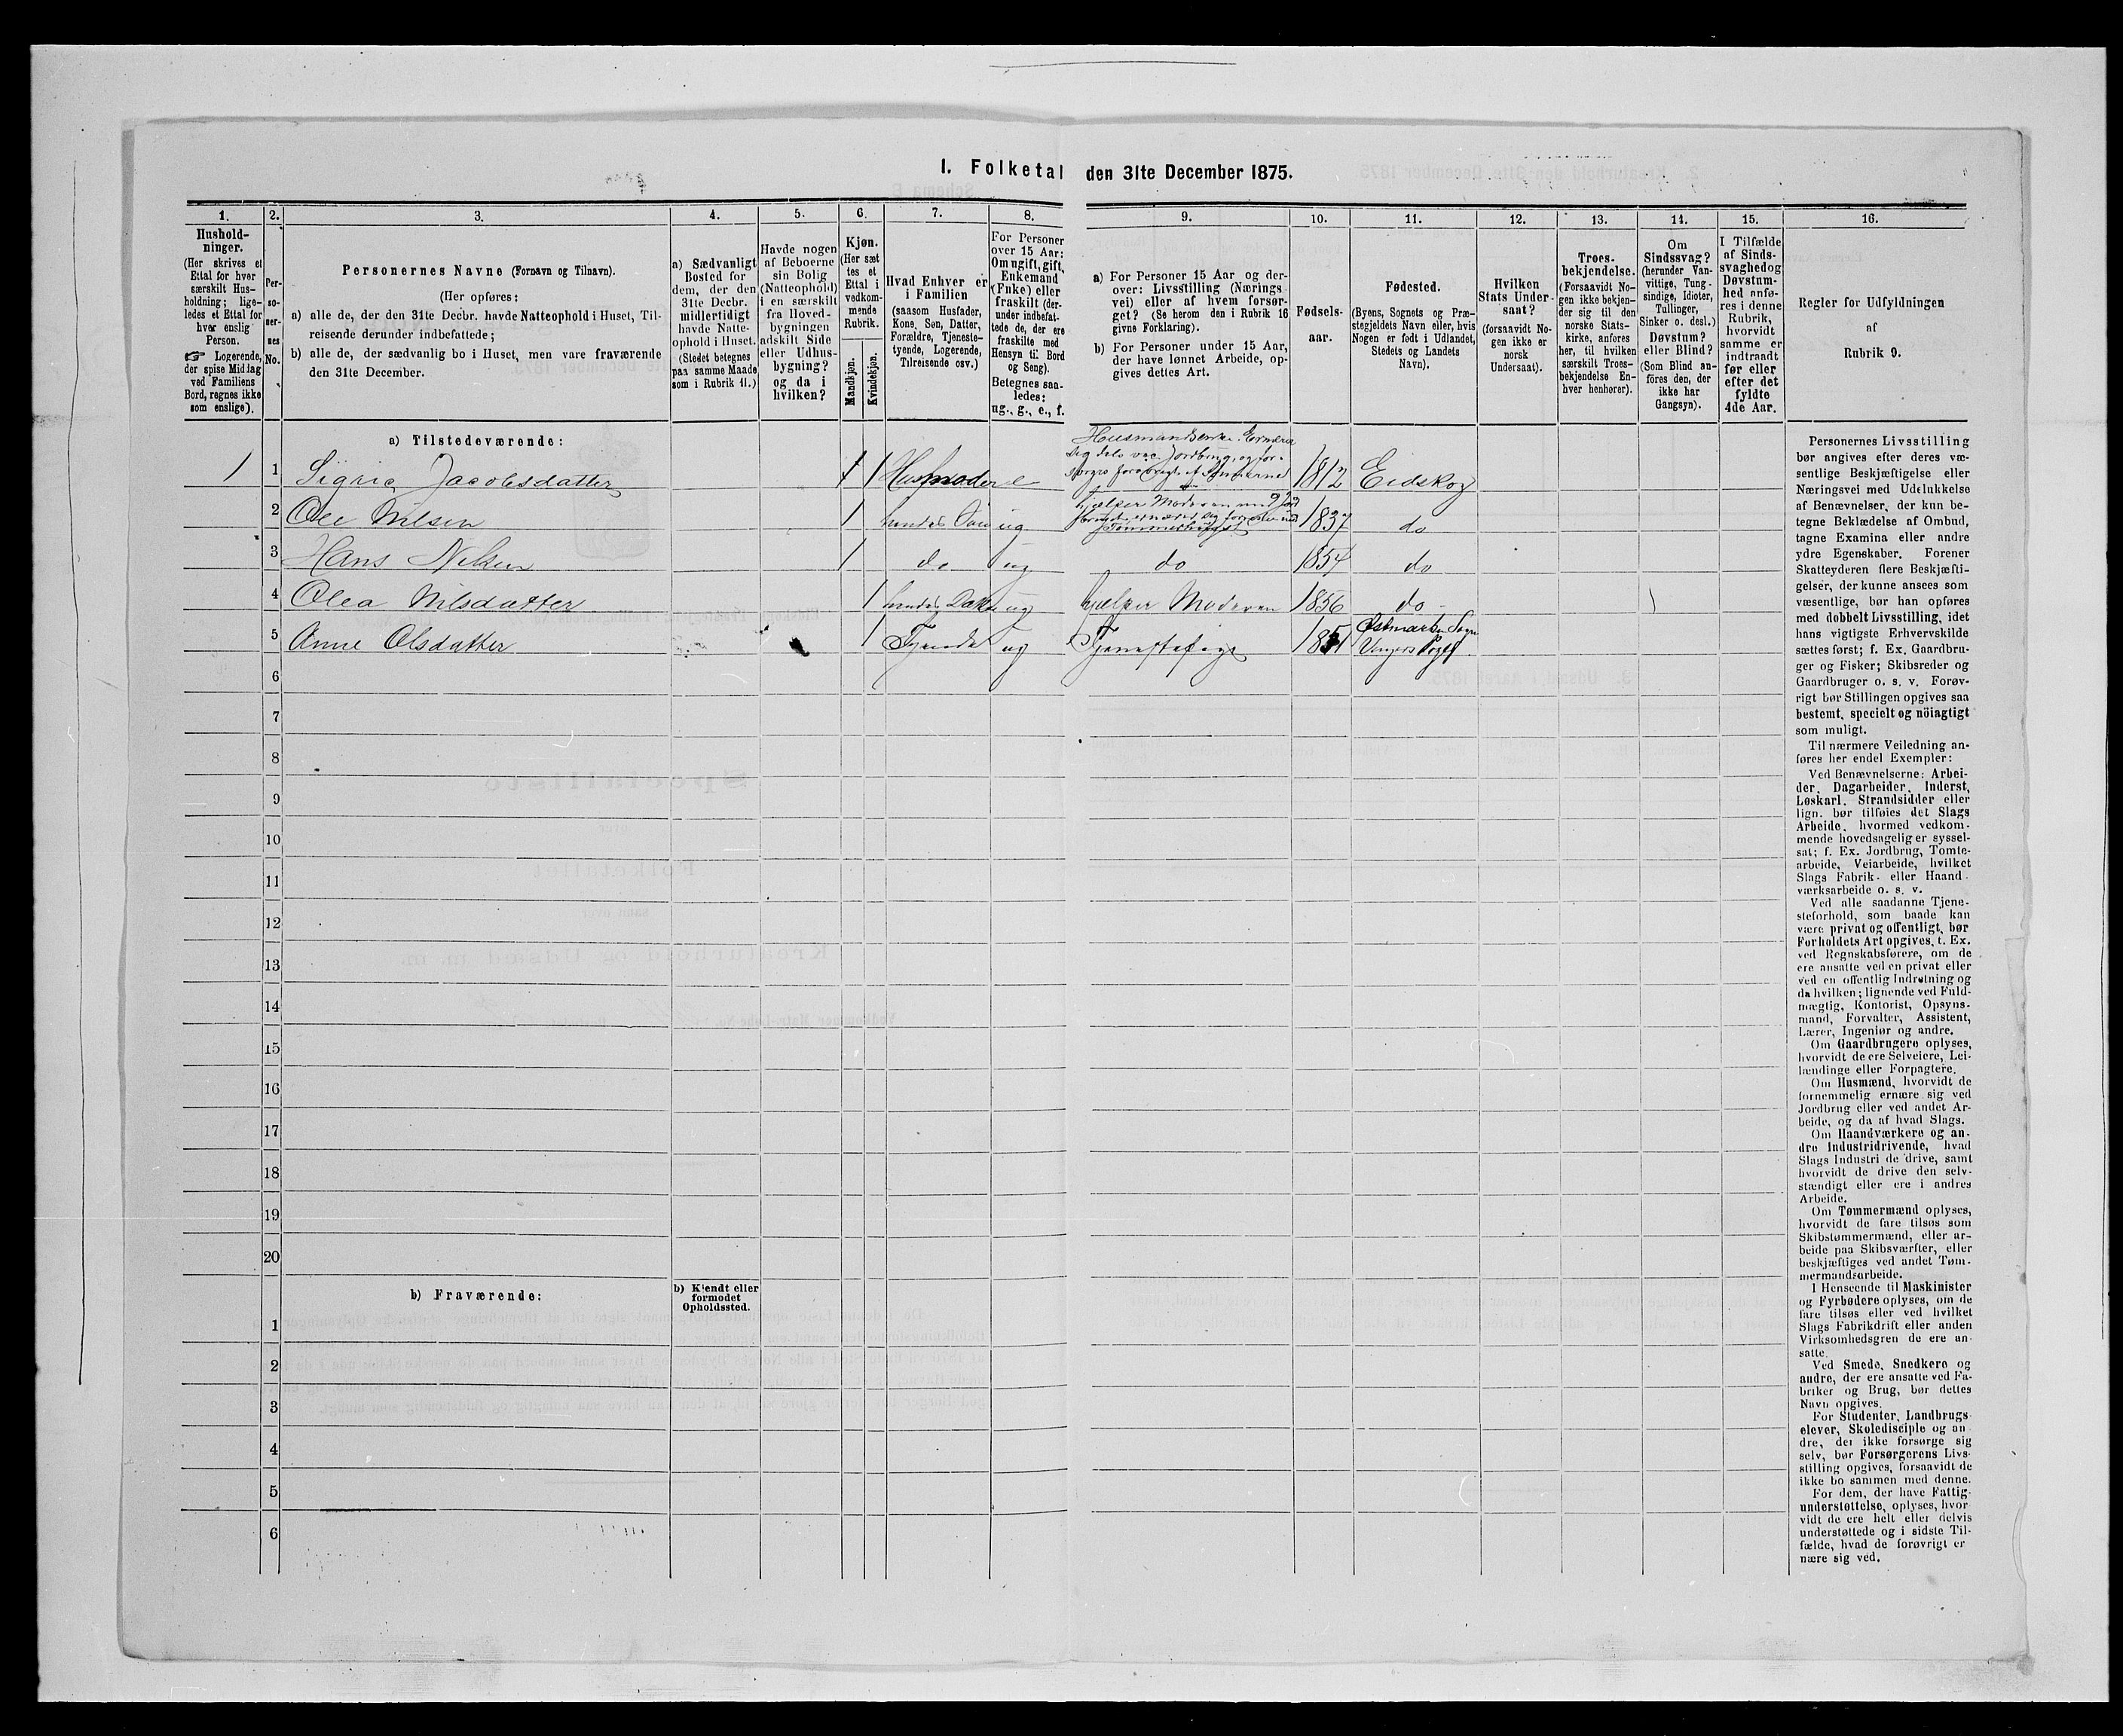 I. Folketal den 31te December 1875.
1.
2.
3.
4.
5.
6.
7.
8.
9.
10.
11.
12.
13.
14.
15.
16.
Hushold-
ninger.
(Her skrives et
Ettal for hver
særskilt Hus-
holdning; lige-
ledes et Ettal for
hver enslig
Person.
☞ Logerende,
der spise Middag
ved Familiens
Bord, regnes ikke
som enslige).
Per-
so-
ner-
nes
No.
Personernes Navne (Fornavn og Tilnavn).
(Her opføres:
a) alle de, der den 31te Decbr. havde Natteophold i Huset, Til-
reisende derunder indbefattede;
b) alle de, der sædvanlig bo i Huset, men vare fraværende
den 31te December.
a) Sædvanligt
Bosted for
dem, der den
31te Decbr.
midlertidigt
havde Natte-
ophold i Huset.
(Stedet betegnes
paa samme Maade
som i Rubrik 11.)
Havde nogen
af Beboerne
sin Bolig
(Natteophold)
i en særskilt
fra Hoved-
bygningen
adskilt Side
eller Udhus-
bygning?
og da i
hvilken?
Kjøn.
(Her sæt
tes et
Ettal i
vedkom-
mende
Rubrik.
Mandkjøn.
Kvindekjøn.
Hvad Enhver er
i Familien
(saasom Husfader,
Kone, Søn, Datter,
Forældre, Tjeneste-
tyende, Logerende,
Tilreisende osv.)
For Personer
over 15 Aar:
Om ugift, gift,
Enkemand
(Enke) eller
fraskilt (der-
under indbefat-
tede de, der ere
fraskilte med
Hensyn til Bord
og Seng).
Betegnes saa-
ledes:
ug., g., e., f.
a) For Personer 15 Aar og der-
over: Livsstilling (Nærings
vei) eller af hvem forsør-
get? (Se herom den i Rubrik 16
givne Forklaring).
b) For Personer under 15 Aar,
der have lønnet Arbeide, op-
gives dettes Art.
Fødsels-
aar.
Fødested.
(Byens, Sognets og Præ-
stegjeldets Navn eller, hvis
Nogen er født i Udlandet,
Stedets og Landets
Navn).
Hvilken
Stats Under-
saat?
(forsaavidt No-
gen ikke er
norsk
Undersaat).
Troes-
bekjendelse.
(Forsaavidt No-
gen ikke bekjen-
der sig til den
norske Stats-
kirke, anføres
her, til hvilken
særskilt Troes-
bekjendelse En-
hver henhører).
Om
Sindssvag?
(herunder Van-
vittige, Tung-
sindige, Idioter,
Tullinger,
Sinker o. desl.)
Døvstum?
eller Blind?
(Som Blind an-
føres den, der
ikke har
Gangsyn).
I Tilfælde
af Sinds-
svaghed og
Døvstum-
hed anfø-
res i denne
Rubrik,
hvorvidt
samme er
indtraadt
før eller
efter det
fyldte
4de Aar.
Regler for Udfyldningen
af
Rubrik 9.
a) Tilstedeværende:
1 1 Sigrid Jacobsdatter 1 Husmoder e
Husmandsenke. Ernærer
sig dels ved Jordbrug, og for-
1812 Eidskog
2 Ole Nilsen 1 hendes Søn ug
hjelper Moderen med Jord
1837 do
3 Hans Nilsen 1 do ug do 1854 do
4 Olea Nilsdatter 1 hendes Datter ug hjelper Moderen 1856 do
5 Anne Olsdatter 1 Tjende ug Tjenestepige 1851 Østmarken Sogn
Vingers Prgj
6
7
8
9
10
11
12
13
14
15
16
17
18
19
20
b) Fraværende:
b) Kjendt eller
formodet
Opholdssted.
1
2
3
4
5
6
Personernes Livsstilling
bør angives efter deres væ-
sentlige Beskjæftigelse eller
Næringsvei med Udelukkelse
af Benævnelser, der kun be-
tegne Beklædelse af Ombud,
tagne Examina eller andre
ydre Egenskaber. Forener
Skatteyderen flere Beskjæfti-
gelser, der kunne ansees som
væsentlige, bør han opføres
med dobbelt Livsstilling, idet
hans vigtigste Erhvervskilde
sættes først; f. Ex. Gaardbru-
ger og Fisker; Skibsreder og
Gaardbruger o. s. v. Forøv-
rigt bør Stillingen opgives saa
bestemt, specielt og nöiagtigt
som muligt.
Til nærmere Veiledning an-
føres her endel Exempler:
Ved Benævnelserne: Arbei-
der, Dagarbeider, Inderst,
Løskarl, Strandsidder eller
lign. bør tilføies det Slags
Arbeide, hvormed vedkom-
mende hovedsagelig er syssel-
sat; f. Ex. Jordbrug, Tomte-
arbeide, Veiarbeide, hvilket
Slags Fabrik- eller Haand-
værksarbeide o. s. v.
Ved alle saadanne Tjene-
steforhold, som baade kan
være privat og offentligt, bør
Forholdets Art opgives, t. Ex.
ved Regnskabsførere, om de
ere ansatte ved en privat eller
ved en offentlig Indretning og
da hvilken; lignende ved Fuld-
mægtig, Kontorist, Opsyns-
mand, Forvalter, Assistent,
Lærer, Ingeniør og andre.
Om Gaardbrugere oplyses,
hvorvidt de ere Selveiere, Lei-
lændinge eller Forpagtere.
Om Husmænd, hvorvidt de
fornemmelig ernære sig ved
Jordbrug eller ved andet Ar-
beide, og da af hvad Slags.
Om Haandværkere og an-
dre Industridrivende, hvad
Slags Industri de drive, samt
hvorvidt de drive den selv-
stændigt eller ere i andres
Arbeide.
Om Tømmermænd oplyses,
hvorvidt de fare tilsøs som
Skibstømmermænd, eller ar-
beide paa Skibsværfter, eller
beskjæftiges ved andet Tøm-
mermandsarbeide.
I Henseende til Maskinister
og Fyrbødere oplyses, om de
fare tilsøs eller ved hvilket
Slags Fabrikdrift eller anden
Virksomhedsgren de ere an-
satte.
Ved Smede, Snedkere og
andre, der ere ansatte ved Fa-
briker og Brug, bør dettes
Navn opgives.
For Studenter, Landbrugs-
elever, Skoledisciple og an
dre, der ikke forsørge sig
selv, bør Forsørgerens Livs-
stilling opgives, forsaavidt de
ikke bo sammen med denne.
For dem, der have Fattig-
understøttelse, oplyses, hvor-
vidt de ere helt eller delvis
understøttede og i sidste Til-
fælde, hvad de forøvrigt er-
nære sig ved.